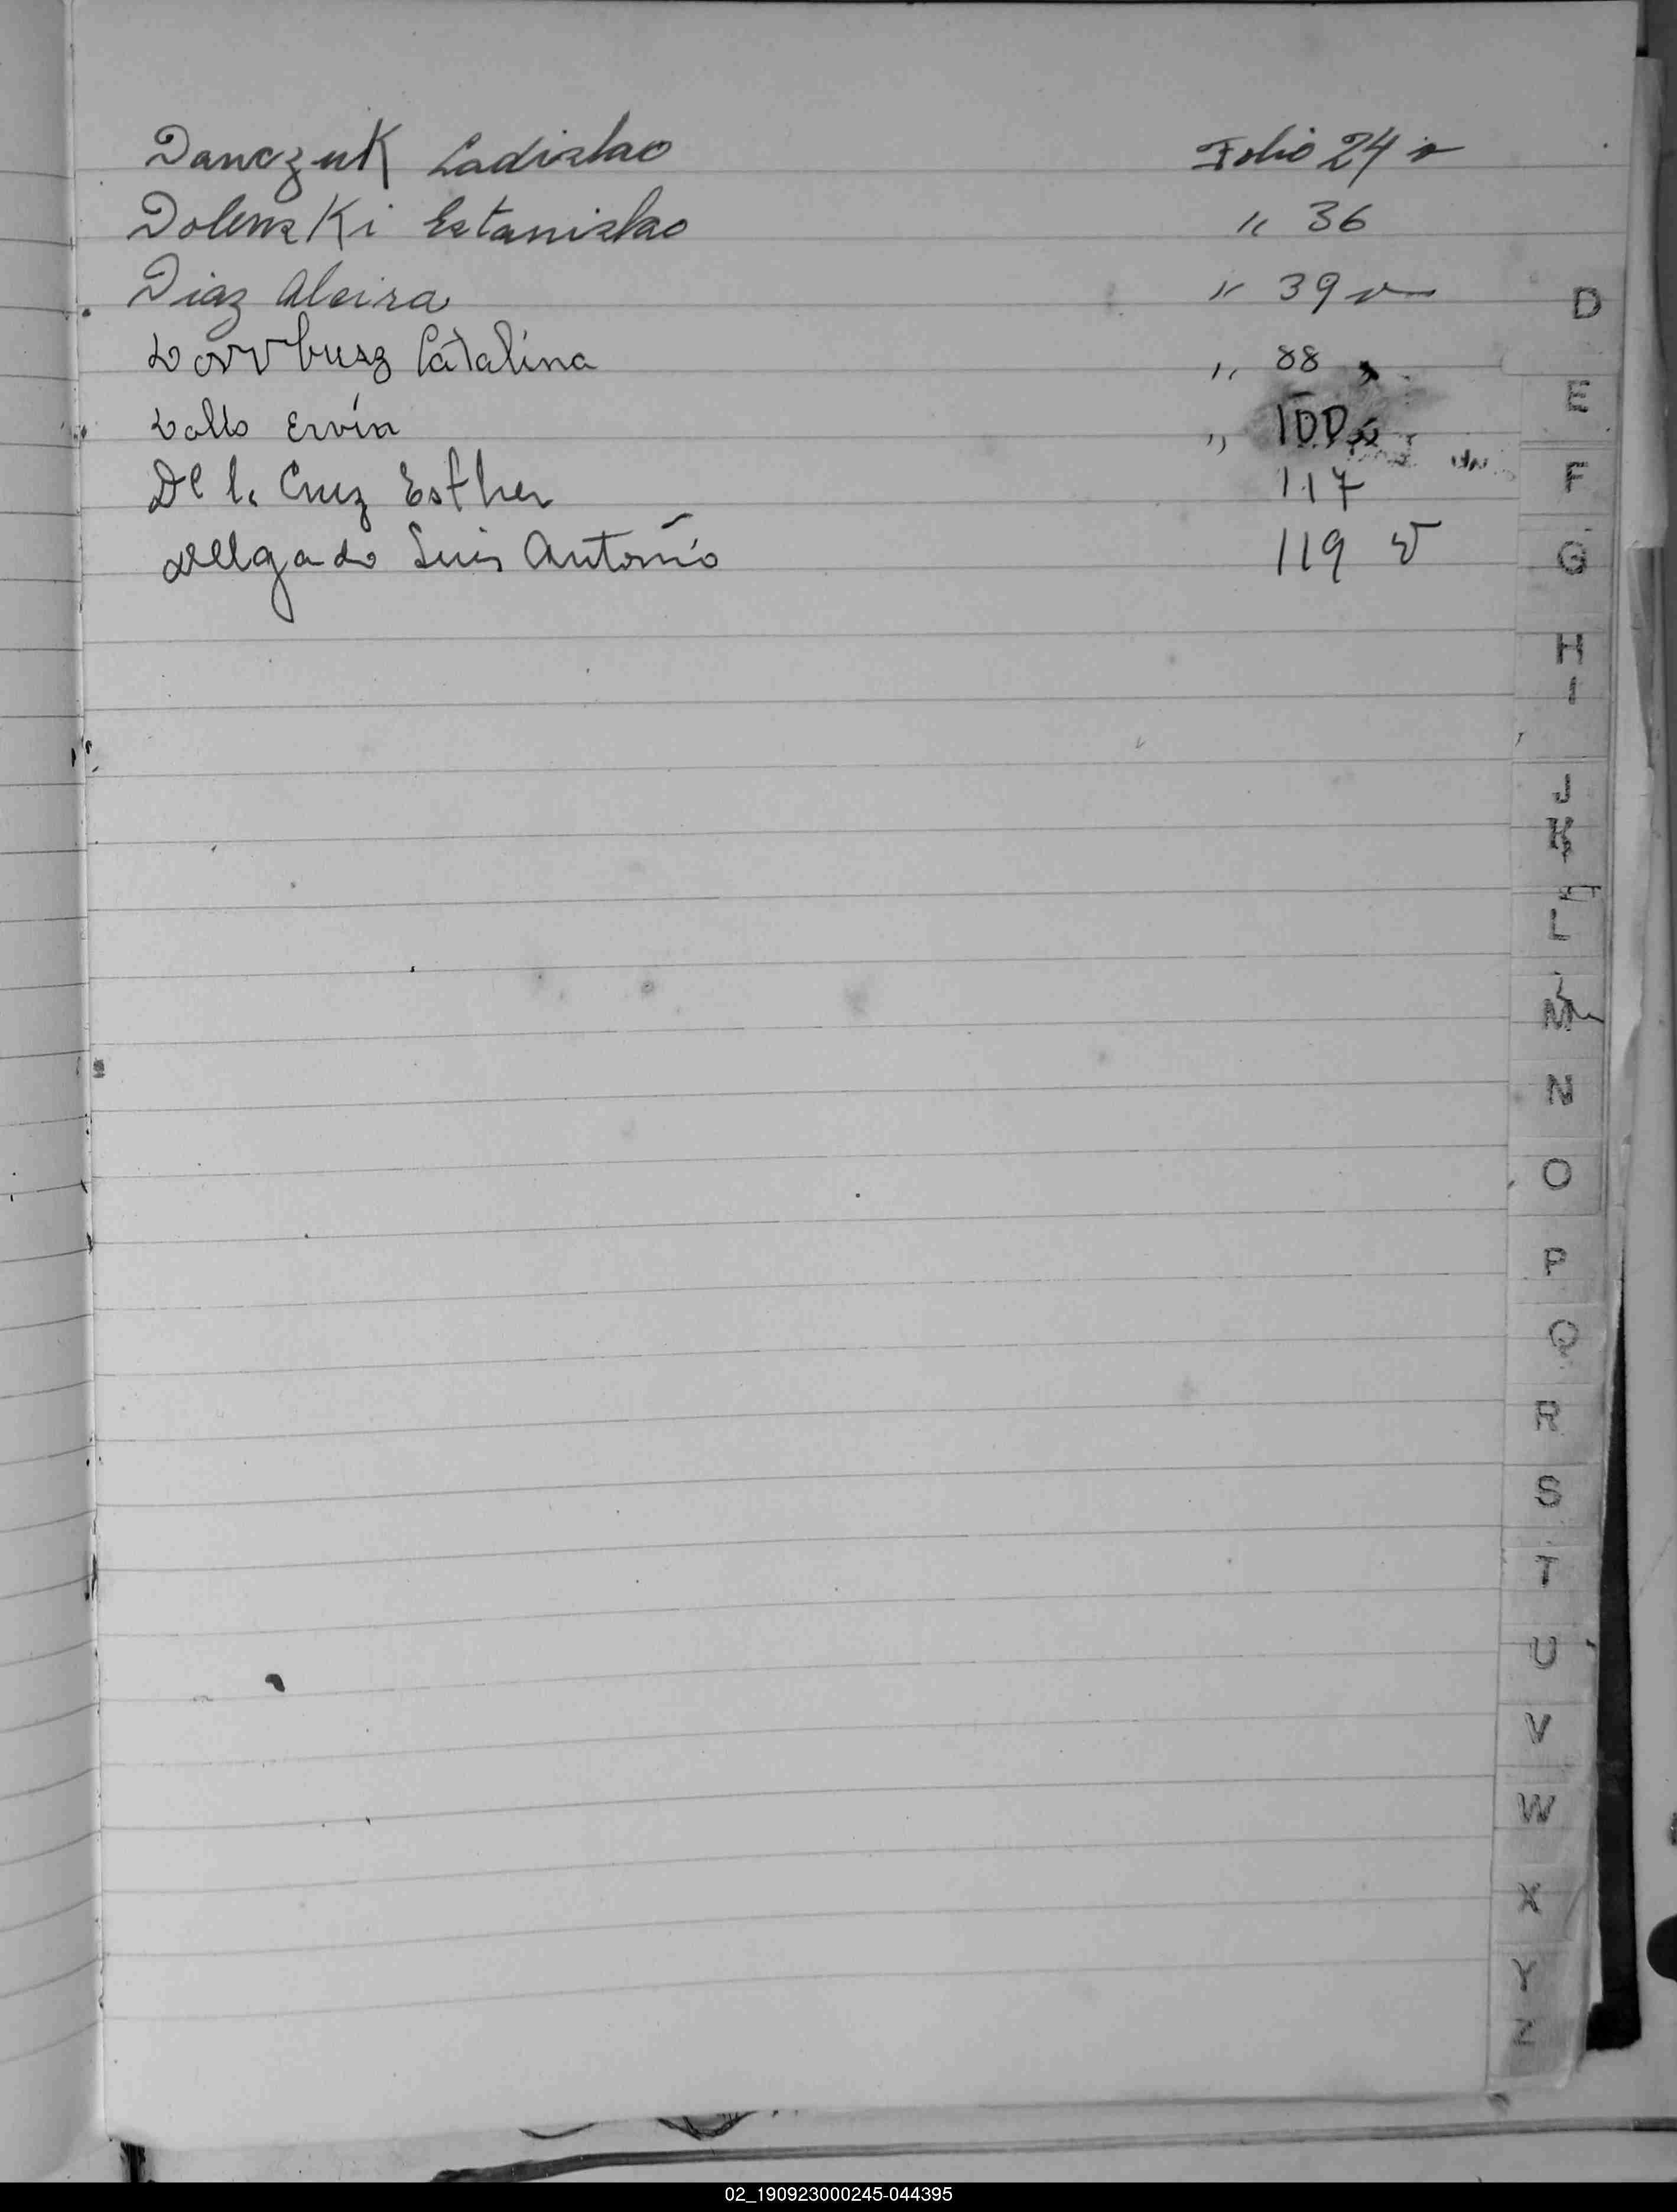 Danczuk Ladislao Folio 24 v
Dolenski Estanislao " 36
Diaz Alcira " 39 v
Catalina " 88
Ervín " 100
De l. Cruz Esther 117
Delgado Luis Antonio 119 v
D
E
F
G
H
I
J
K
L
M
N
O
P
Q
R
S
T
U
V
W
X
Y
Z
02_190923000245-044395